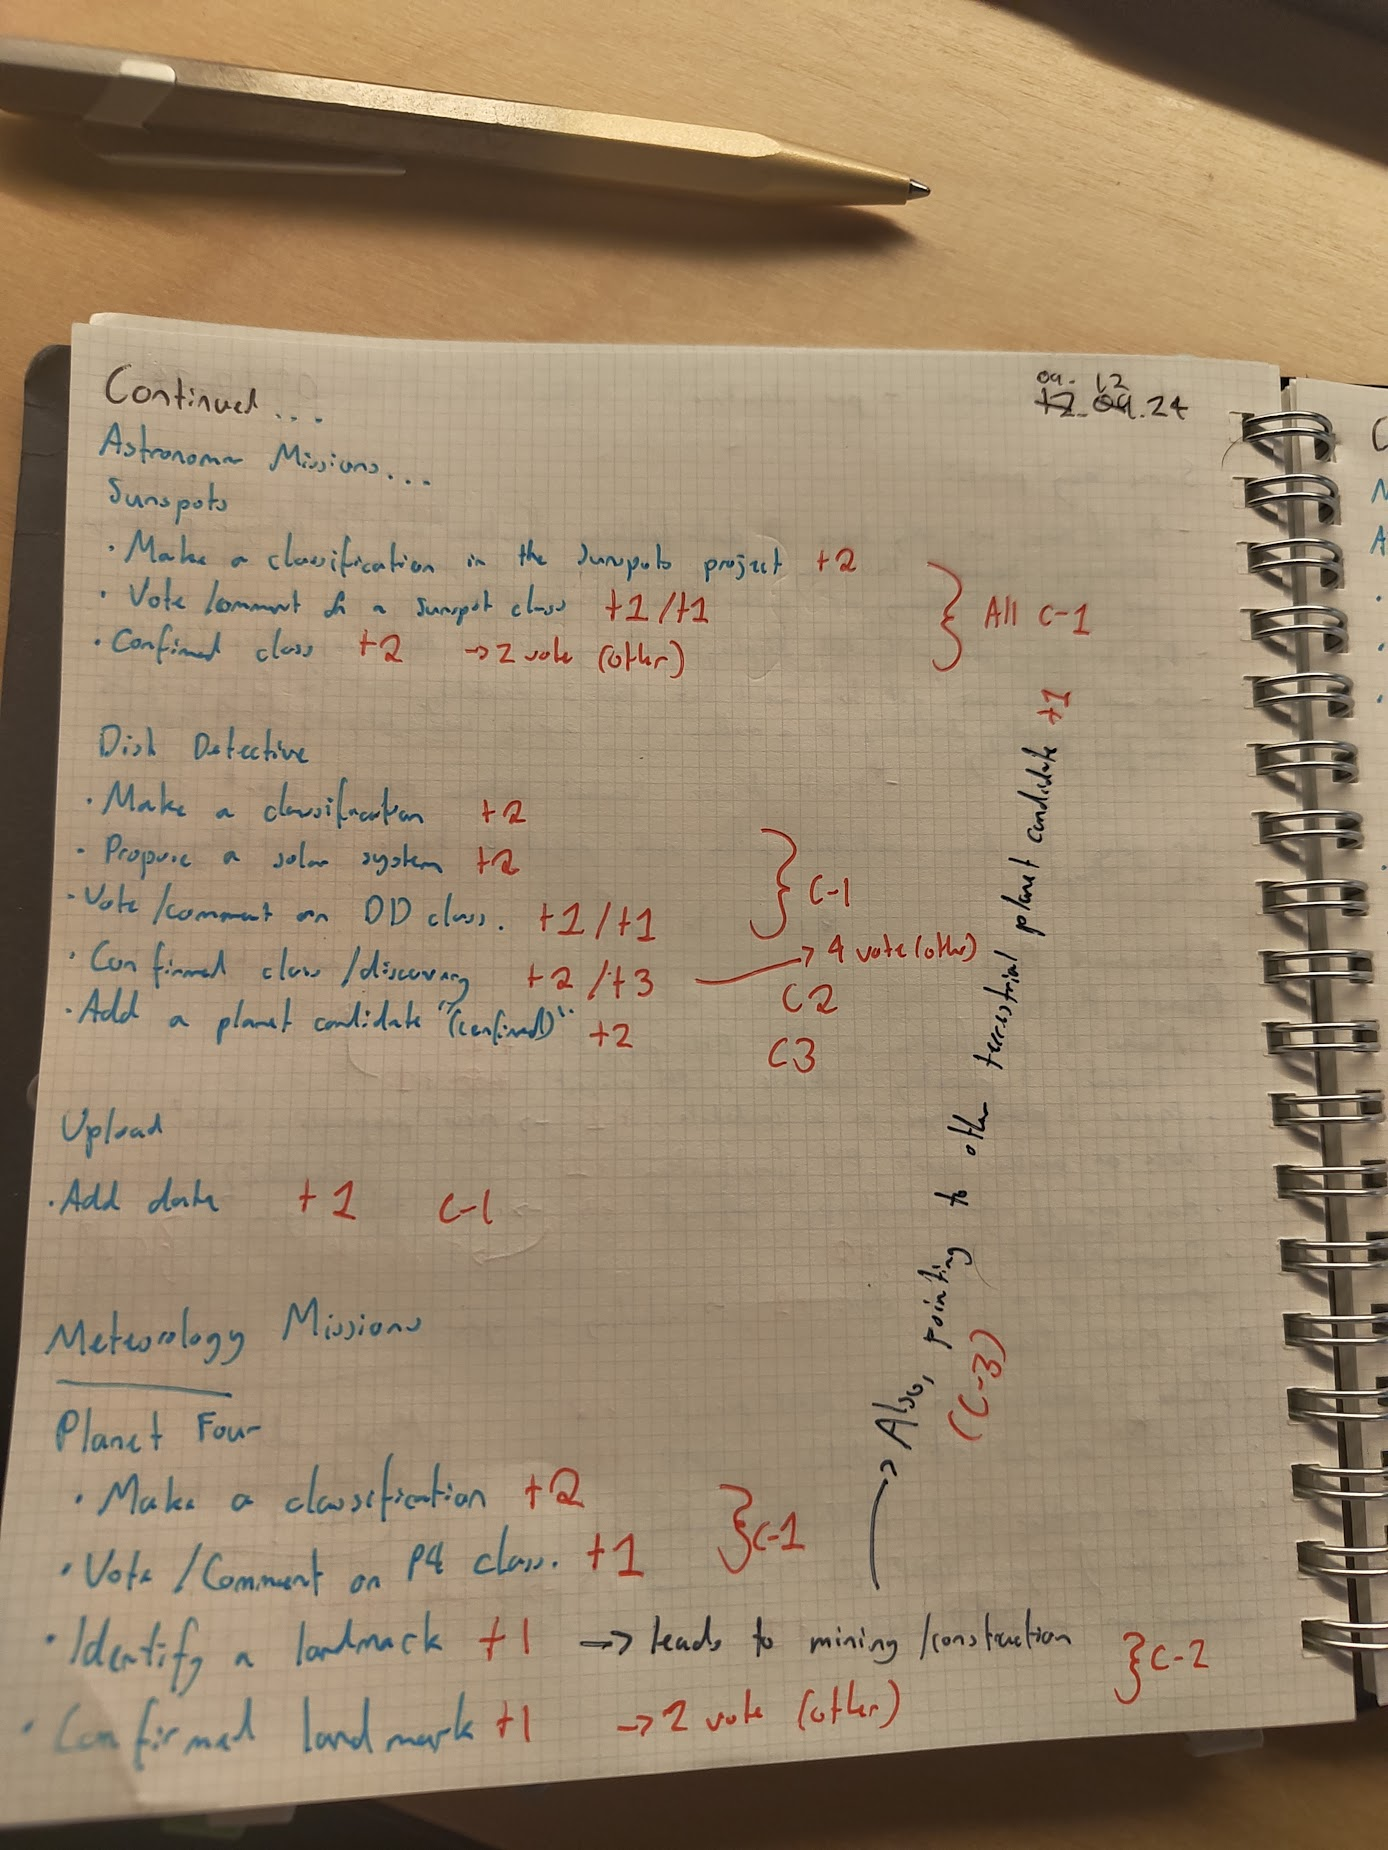 Continued...
09. 12
12.09.24
Astronomer Missions...
Sunspots
· Make a classification in the sunspots project +2
· Vote/comment on a sunspot class +1/+1
· Confirmed class +2 → 2 vote (other)
} All C-1
Disk Detective
· Make a classification +2
· Propose a solar system +2
· Vote/comment on DD class. +1/+1
} C-1
· Confirmed class/discovery +2/+3 → 4 vote (other)
C2
· Add a planet candidate "(confirmed)" +2
C3
Upload
· Add data +1 C-1
Meteorology Missions
Planet Four
· Make a classification +2
· Vote/Comment on P4 class. +1
} C-1
· Identify a landmark +1 → leads to mining/construction
· Confirmed landmark +1 → 2 vote (other)
} C-2
→ Also, pointing to other terrestrial planet candidate +1
(C-3)
C
N
A